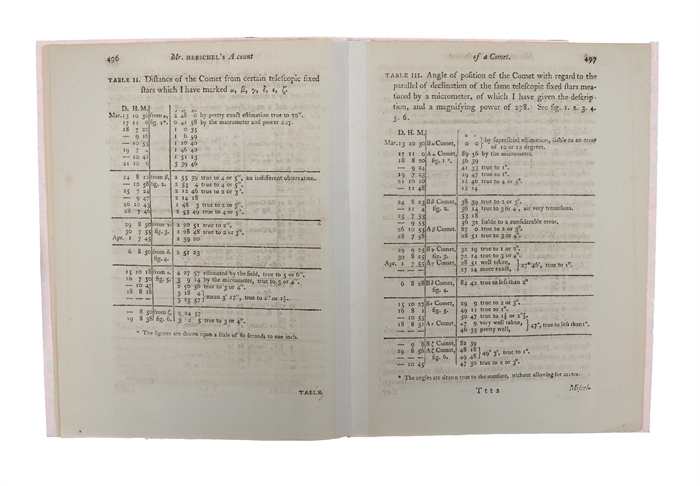 496 Mr. HERSCHEL's A count
TABLE II. Distance of the Comet from certain telescopic fixed
stars which I have marked α, β, γ, δ, ε, ζ.
D. H. M.
Mar. 13 10 30 from α, 2 48 0 by pretty exact estimation true to 20".
17 11 0 fig. 1*. 0 41 58 by the micrometer and power 227.
18 7 20 1 0 35
— 9 10 1 6 59
— 10 55 1 10 40
19 7 1 46 40
— 10 1 51 23
21 10 0 3 39 46
24 8 from β, 2 55 39 true to 4 or 5", an indifferent observation.
— 10 58 fig. 2. 2 53 4 true to 4 or 5".
25 7 24 2 12 46 true to 2 or 3".
— 9 47 2 14 18
26 10 43 1 48 3 true to 2 or 3".
28 7 46 2 55 49 true to 4 or 5".
29 8 50 from γ. 2 20 51 true to 2".
30 7 55 fig. 3. 1 28 48 true to 2 or 3".
Apr. 1 7 45 2 39 20
6 8 50 from δ. 2 51 23
fig. 4.
15 10 18 from ε. 4 27 57 estimated by the field, true to 5 or 6".
16 7 50 fig. 5. 3 9 14 by the micrometer, true to 3 or 4".
— 10 47 3 50 56 true to 3 or 4".
18 8 18 3 18 4 } mean 3' 17", true to 2" or
— — — 3 15 57
— 8 50 from ζ. 2 24 57
19 8 38 fig. 6. 3 2 5 true to 3 or 4".
* The figures are drawn upon a scale of 80 seconds to one inch.
TABLE
of a Comet. 497
TABLE III. Angle of position of the Comet with regard to the
parallel of declination of the same telescopic fixed stars mea-
sured by a micrometer, of which I have given the descrip-
tion, and a magnifying power of 278. See fig. 1. 2. 3. 4.
5. 6.
D. H. M.
Mar. 13 10 30 B α Comet, 0 0 } by superficial estimation, liable to an error
of 10 or 12 degrees.
17 11 0 A α Comet, 89 56 by the micrometer.
18 8 20 fig. 1*. 36 39
— 9 24 41 33 true to 1°.
19 7 25 29 47 true to 1°.
21 10 11 21 46 true to 4 or 5°.
— 11 48 23 14
24 8 23 B β Comet, 38 39 true to 2 or 3°.
— 11 4 fig. 2. 36 14 true to 3 or 4°, air very tremulous.
25 7 33 53 18
— 9 55 56 32 liable to a considerable error.
26 10 55 A β Comet, 87 0 true to 2 or 3°.
28 7 56 28 51 true to 3 or 4°.
29 9 25 B γ Comet, 52 19 true to 1 or 2°.
30 8 25 fig. 3. 72 14 true to 3 or 4°.
Apr. 1 7 55 A γ Comet, 28 51 well taken, } 27° 46', true to 1°.
— — — 37 14 more exact,
6 8 58 B δ Comet, 84 42 true to less than 2°
fig. 4.
15 10 27 B ε Comet, 29 9 true to 2 or 3°.
16 8 1 fig. 5. 49 11 true to 1°.
— 10 55 50 47 true to
18 8 31 A ε Comet, 47 9 very well taken, } 47°, true to less than 1°.
— — — 46 35 pretty well,
— 9 8 B ζ Comet, 82 39
19 8 56 A ζ Comet, 48 18 } 49° 3', true to 1°.
— — — fig. 6. 49 48
— 9 45 47 30 true to 2 or 3°.
* The angles are drawn true to the measure, without allowing for
T t t 2 Miscel.